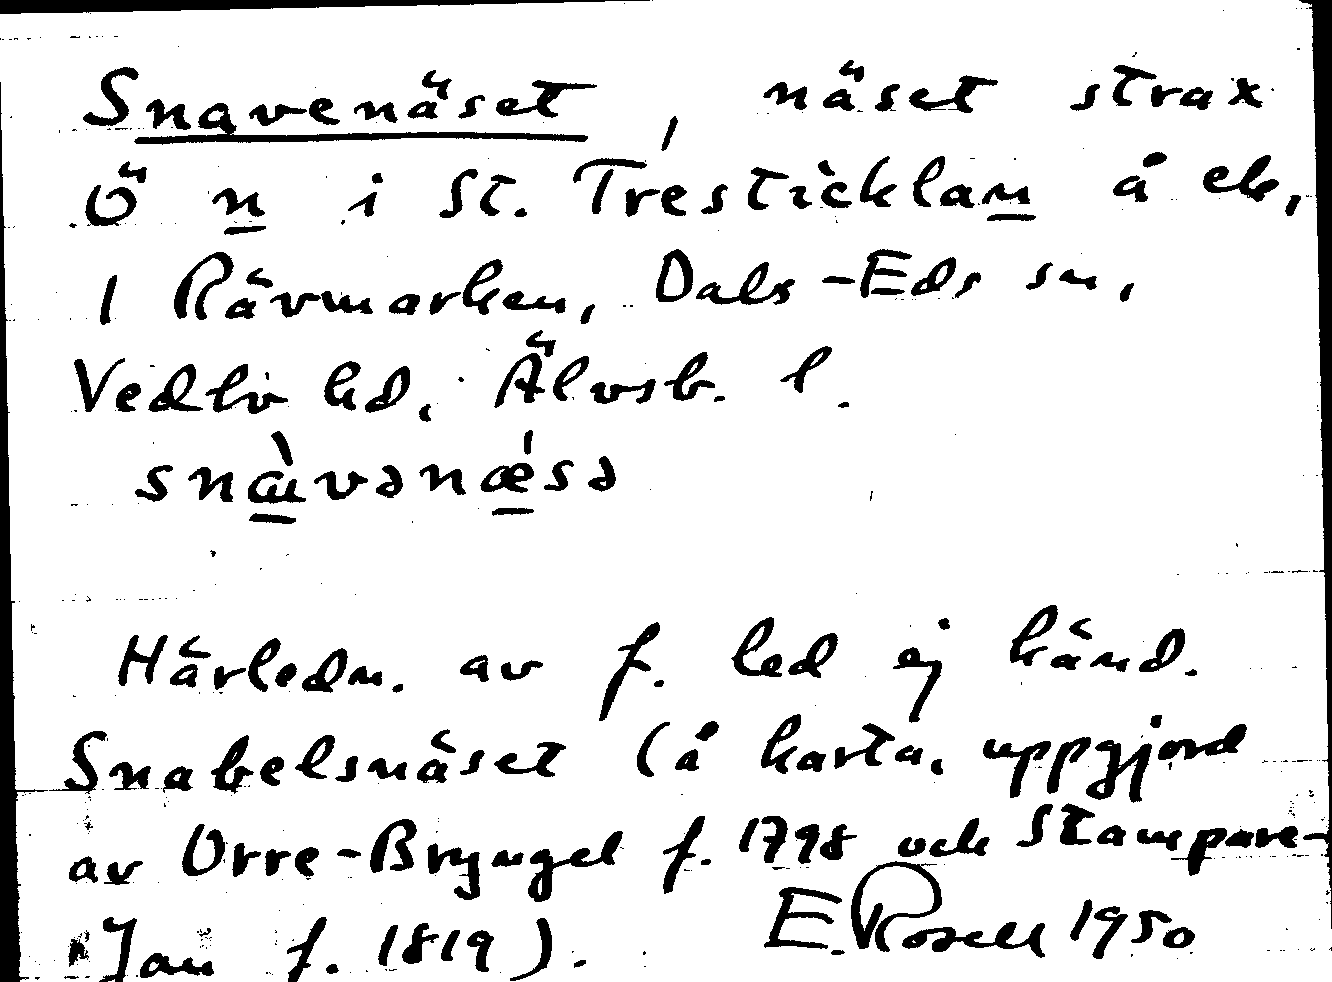 Snavenäset, näset strax
Ö n i St. Tresticklan å ek,
i Rävmarken, Dals-Eds sn,
Vedbo hd, Älvsb. l.
snàvənǽsə
Härledn. av f. led ej känd.
Snabelsnäset (å karta, uppgjord
av Orre-Bryngel f. 1798 och Stampare-
Jan f. 1819). E. Rosell 1950